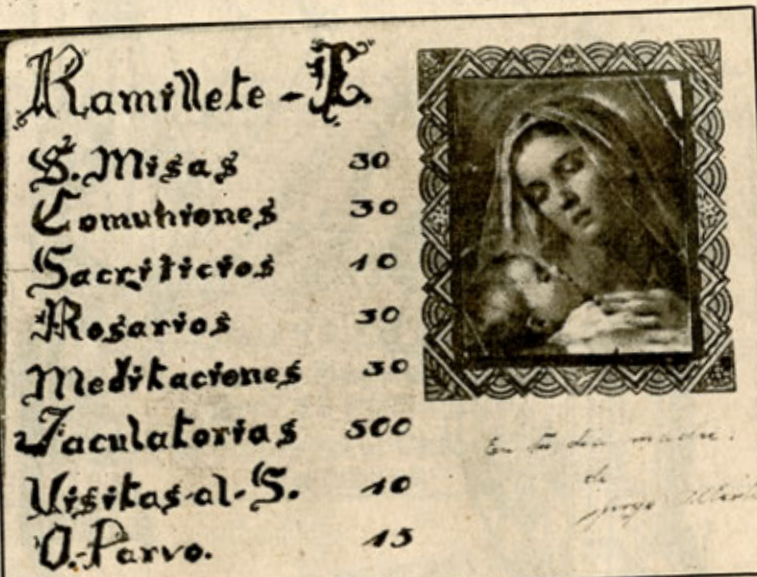 Ramillete - E.
S. Misas 30
Comuniones 30
Sacrificios 10
Rosarios 30
Meditaciones 30
Jaculatorias 500
Visitas-al-S. 10
O.-Parvo. 15
En tu día madre.
de
Jorge Alberto